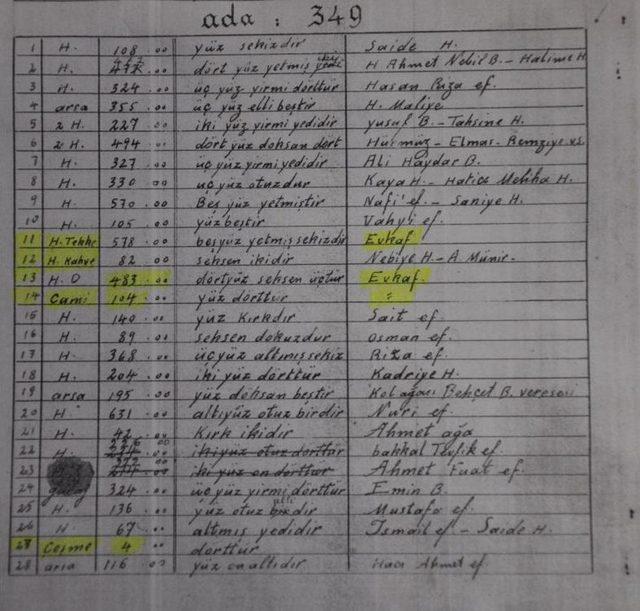 ada : 349
1 H. 108.00 yüz sekizdir Saide H.
2 H. dört yüz yetmiş H Ahmet Nebil B. - Halime H
3 H. 324.00 üç yüz yirmi dörttür Hasan Rıza ef.
4 arsa 355.00 üç yüz elli beştir H. Maliye
5 2 H. 227.00 iki yüz yirmi yedidir yusuf B. - Tahsine H.
6 2 H. 494.00 dört yüz doksan dört Hürmüz - Elmas. Remziye vs.
7 H. 327.00 üç yüz yirmi yedidir Ali Haydar B.
8 H. 330.00 üç yüz otuzdur Kaya H. - Hatice Meliha H.
9 H. 570.00 Beş yüz yetmiştir Nafi' ef. - Saniye H.
10 H. 105.00 yüz beştir Vahyi ef.
11 H. Tekke 578.00 beşyüz yetmiş sekizdir Evkaf
12 H. Kahve 82.00 seksen ikidir Nebiye H - A Münir.
13 H. D 483.00 dörtyüz seksen üçtür Evkaf.
14 Cami 104.00 yüz dörttür "
15 H. 140.00 yüz Kırkdır Sait ef.
16 H. 89.00 seksen dokuzdur osman ef.
17 H. 368.00 üç yüz altmış sekiz Rıza ef.
18 H. 204.00 iki yüz dörttür Kadriye H.
19 arsa 195.00 yüz doksan beştir Kolağası Behçet B. veresesi
20 H 631.00 altıyüz otuz birdir Nuri ef.
21 H. 42.00 Kırk ikidir Ahmet ağa
22 H. 226.00 iki yüz otuz dörttür bakkal Tevfik ef.
23 iki yüz on dörttür Ahmet Fuat ef.
24 324.00 üç yüz yirmi dörttür Emin B.
25 H. 136.00 yüz otuz altıdır Mustafa ef.
26 H 67.00 altmış yedidir İsmail ef - Saide H.
27 Çeşme 4.00 dörttür
28 arsa 116.00 yüz on altıdır Hacı Ahmet ef.